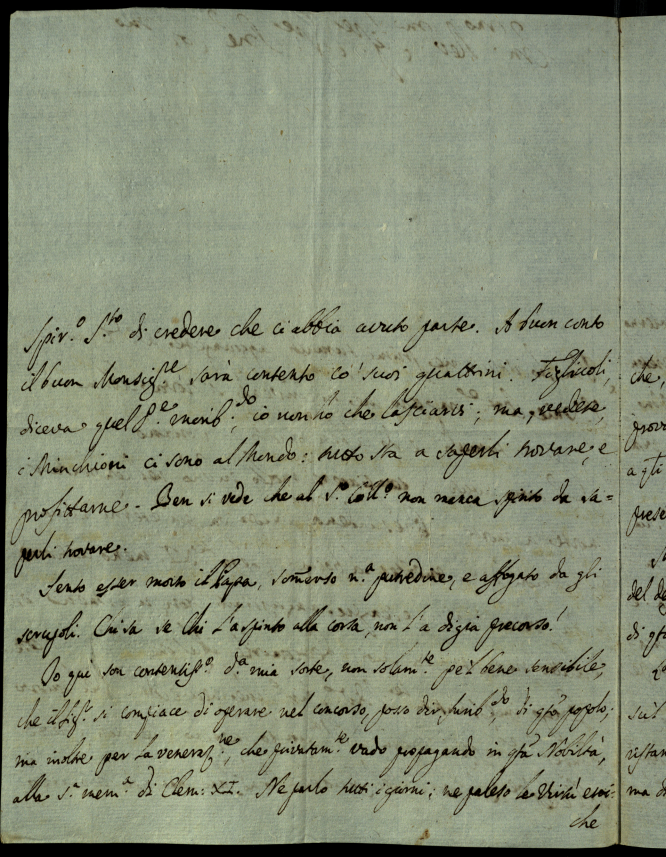 Spir.º S.to di credere che ci abbia avuto parte. A buon conto
il buon Monsig.re sarà contento co' suoi quattrini. Figliuoli,
diceva quel P.e morib.do, io non hò che lasciarvi; ma, vedete,
i Minchioni ci sono al Mondo: tutto sta a saperli trovare, e
profittarne. Ben si vede che al S.º Coll.º non manca spirito da sa=
perli trovare.
Sento esser morto il Papa, somerso n.a putredine, e affogato da gli
scrupoli. Chi sa se chi l'a spinto alla corta, non l'a digià precorso!
Io qui son contentiss.º d.a mia sorte, non solam.te pe'l bene sensibile,
che il Sig.r si compiace di operare nel concorso, posso dir, furib.do, di q.sto popolo;
ma inoltre per la veneraz.ne, che privatam.te vado propagando in q.sta Nobiltà,
alla S.a mem.a di Clem: XI. Ne parlo tutti i giorni; ne paleso le Virtù eroi-
che
che,
prov
a gli
prese
del de
di q.sto
sul
ristan
ma di